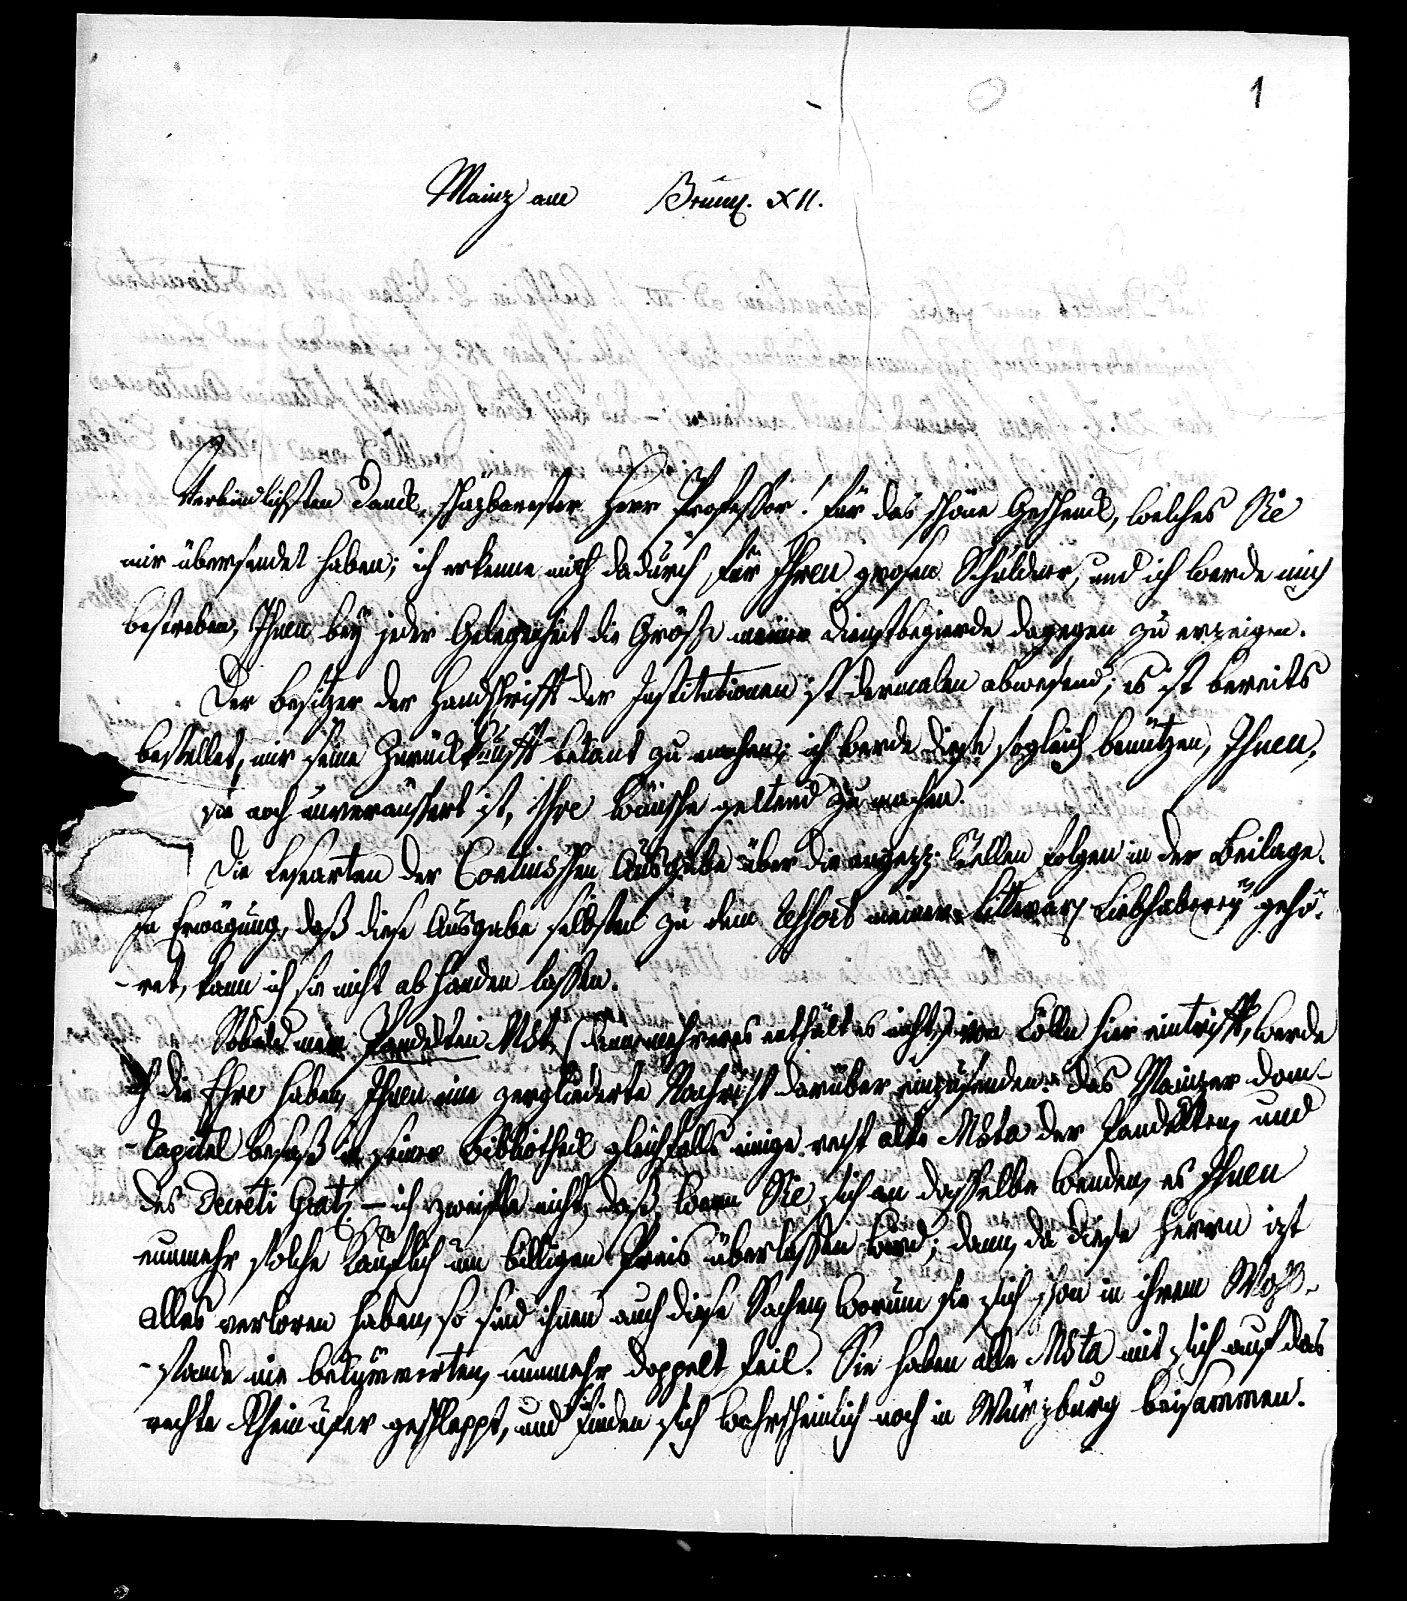 1
Mainz am Brum. XII.
Verbindlichsten Danck, schäzbarester Herr Professor! für das schöne Geschenck, welches Sie
mir übersendet haben; ich erkenne mich dadurch für Ihren grosen Schuldner, und ich werde mich
bestreben, Ihnen bey jeder Gelegenheit die Größe meiner Dienstbegierde dagegen zu erzeigen.
Der Besitzer der Handschrifft der Institutionen ist dermalen abwesend; es ist bereits
bestellet, mir seine Zurückkunfft bekant zu machen; ich werde diese sogleich benützen, Ihnen,
sie noch unveräussert ist, Ihre Wünsche geltend zu machen.
Die Lesearten der Contiusschen Ausgabe über die angez. Stellen folgen in der Beilage.
In Erwägung, daß diese Ausgabe selbsten zu dem meiner litterar. Liebhaberey gehö-
-ret, kann ich sie nicht ab Handen lassen.
Sobald mein Pandekten Mst. (dann mehreres enthält es nicht,) von Cölln hier eintrifft, werde
ich die Ehre haben, Ihnen eine zergliederte Nachricht darüber einzusenden. Das Mainzer Dom-
-Capitel besaß in seiner Bibliotheck gleichfalls einige recht alte Msta der Pandekten, und
des Decreti Grat. – ich zweifle nicht, daß, wenn Sie sich an dasselbe wenden, es Ihnen
nunmehr solche käuflich um billigen Preis überlassen wird; dann, da diese Herrn izt
alles verloren haben, so sind ihnen auch diese Sachen, worum sie sich schon in ihrem Wohl-
-stande nie bekümmerten, nunmehr doppelt feil. Sie haben alle Msta mit sich auf das
rechte Rheinufer geschleppt, und finden sich wahrscheinlich noch in Würzburg beisammen.